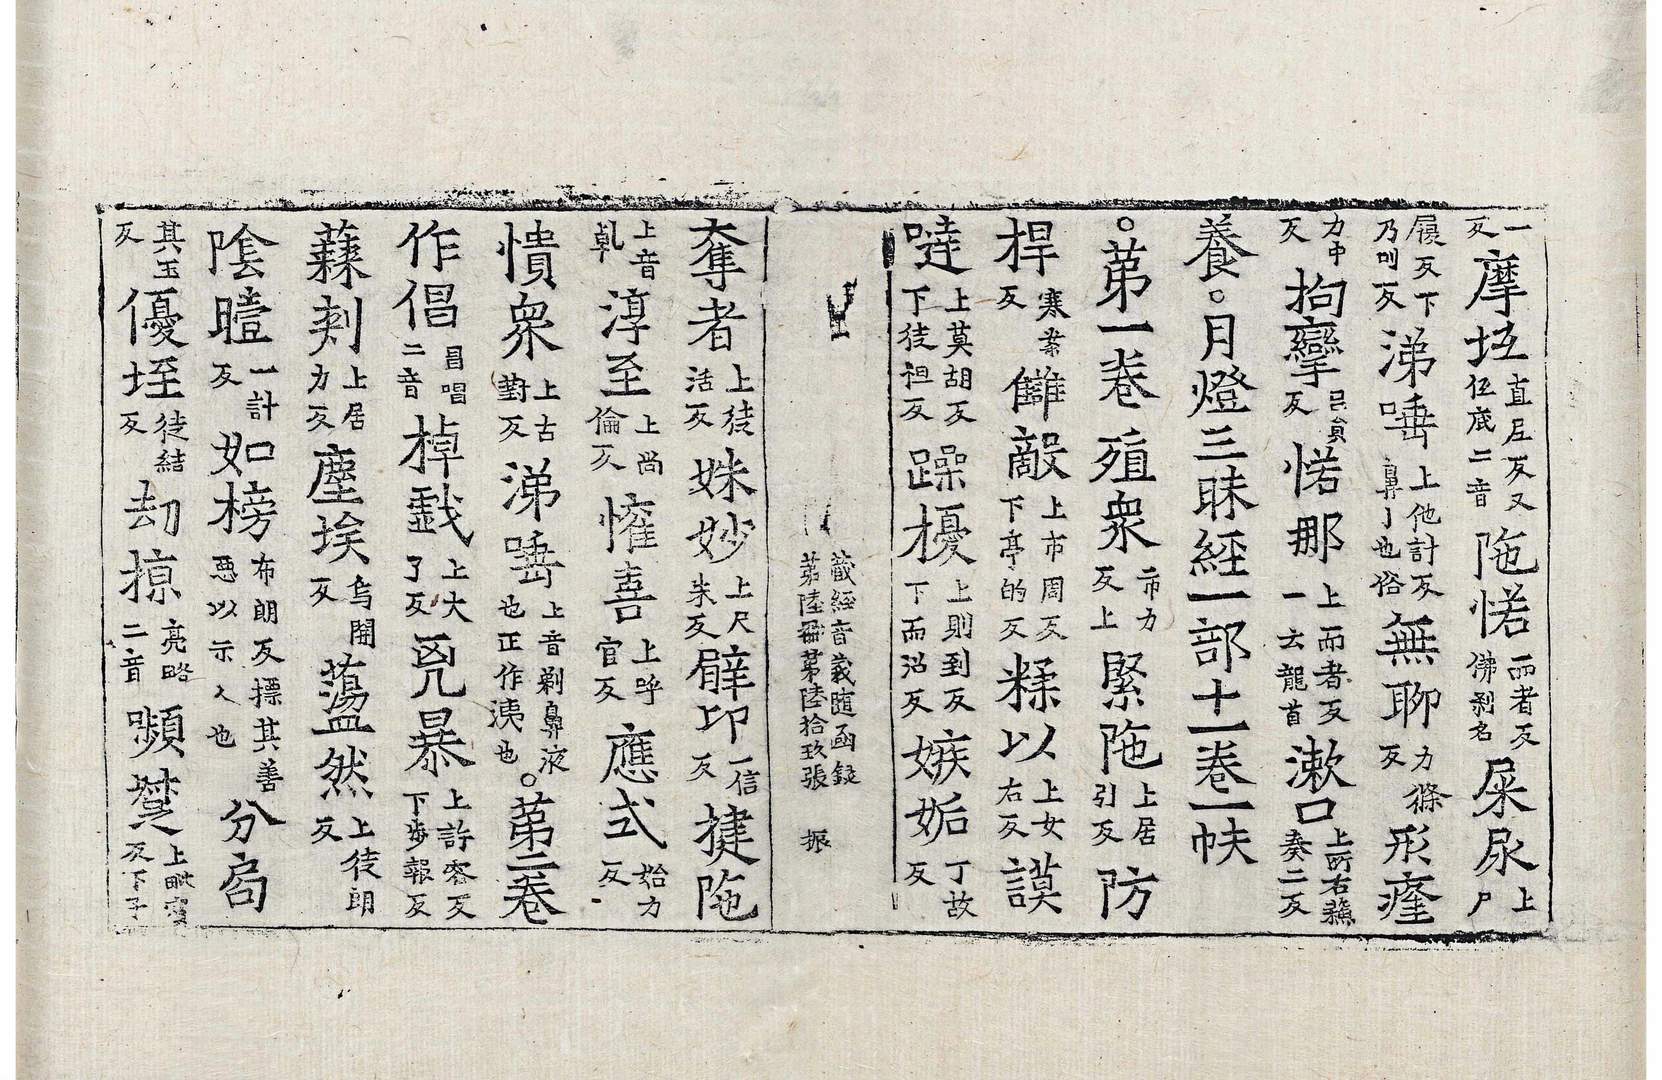 一反摩坘直尼反又伍底二音陁惹而者反佛刹名屎尿上尸
履反下乃叫反涕唾上他計反鼻丁也俗無聊力條反形瘞
力中反拘孿吕貟反惹那上而者反一云龍首漱口上所右蘓奏二反
養○月燈三昧經一部十一卷一帙
○第一卷殖衆市力反上緊陁上居引反防
桿寒案反讎敵上市周反下亭的反糅以上女右反謨
噠上莫胡反下徒袒反躁擾上則到反下而沼反嫉妬丁故反
藏經音義随函録
第陸冊第陸拾玖張 振
奪者上徒活反姝妙上尺朱反臂印一信反揵陁
上音乹淳至上尚倫反懽喜上呼官反應式始力反
憒衆上古對反涕唾上音剃鼻液也正作洟也○第二卷
作倡昌唱二音掉戲上大了反兇暴上許容反下步報反
蕀刾上居力反塵埃烏開反蕩然上徒朗反
陰曀一計反如榜布朗反摽其善惡以示人也分
其玉反優垤徒結反刦掠亮略二音嚬上毗賔反下子